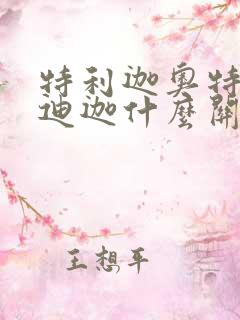 特利迦奥特
迪迦什麼關
王想平